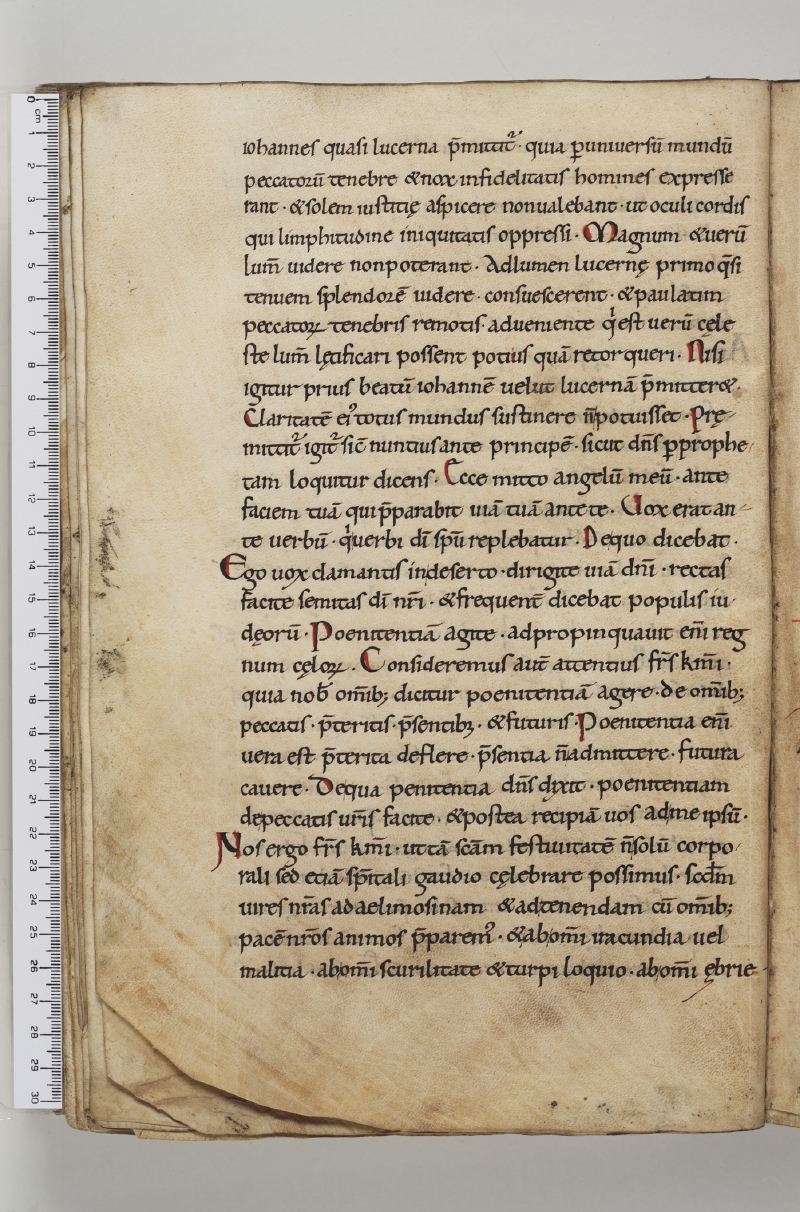 iohannes quasi lucerna p̄mittit᷑ · quia ꝑuniuersū mundū
peccatorū tenebre & nox infidelitatis homines expresse
rant · & solem iustitię aspicere nonualebant · ut oculi cordis
qui limphitudine iniquitatis oppressi · Magnum & uerū
lum̄ uidere nonpoterant · Adlumen lucernę primo q̄si
tenuem splendorē uidere · consuescerent · & paulatim
peccatoꝝ tenebris remotis · adueniente qͥ est uerū cęle
ste lum̄ lętificari possent potius quā retorqueri · Nisi
igitur prius beatū iohannē uelut lucernā p̄mitteret ·
Claritatē ei᾽ totus mundus sustinere n̄ potuisset · Prę
mittit᷑ igit᷑ sic̄ nuntius ante principē · sicut dn̄s ꝑprophe
tam loquitur dicens · Ecce mitto angelū meū · ante
faciem tuā qui p̄parabit uiā tuā ante te · Uox erat an
te uerbū · qͥ uerbi dī sp̄u replebatur · Dequo dicebat ·
Ego uox clamantis indeserto · dirigite uiā dn̄i · rectas
facite semitas dī nr̄i · & frequent̄ dicebat populis iu
dęorū · Poenitentiā agite · adpropinquauit em̄ reg
num cęloꝝ · Consideremus aut̄ attentius fr̄s km̄i ·
quia nob̄ om̄ib; dicitur poenitentiā agere · de om̄ib;
peccatis · p̄teritis · p̄sentibꝫ · & futuris · Poenitentia em̄
uera est p̄terita deflere · p̄sentia n̄ admittere · futura
cauere · Dequa penitentia dn̄s dixit · poenitentiam
depeccatis ur̄is facite · & postea recipiā uos ad me ipsū ·
Nos ergo fr̄s km̄i · ut tā sc̄am festiuitatē n̄ solū corpo
rali sed etiā sp̄itali gaudio cęlebrare possimus · scd̄m
uires nr̄as ad aelimosinam & ad tenendam cū om̄ib;
pacē nr̄os animos p̄parem᾽ · & ab om̄i iracundia uel
malitia · ab om̄i scurilitate & turpi loquio · ab om̄i ębrie